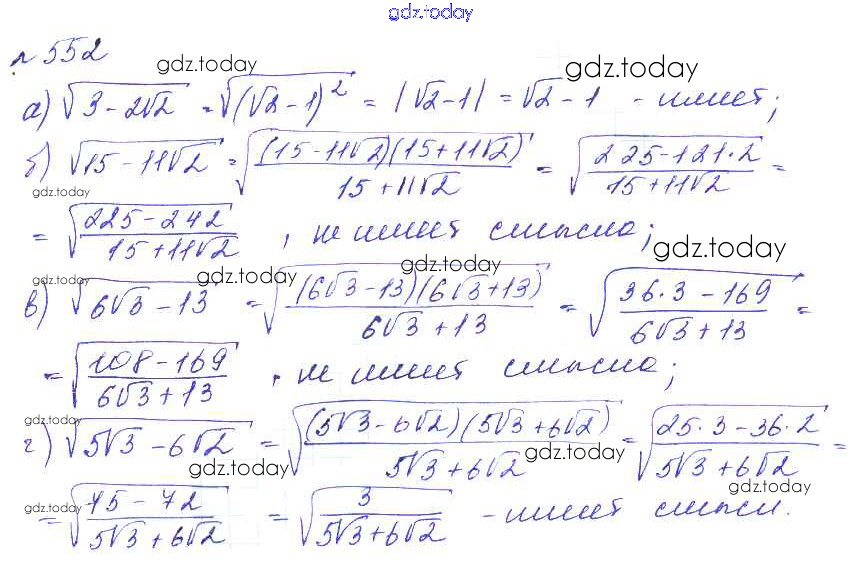 gdz.today
№ 552 gdz.today gdz.today
а) √(3 - 2√2) = √((√2 - 1)²) = |√2 - 1| = √2 - 1 - имеет;
б) √(15 - 11√2) = √((15 - 11√2)(15 + 11√2) / (15 + 11√2)) = √((225 - 121·2) / (15 + 11√2)) =
gdz.today gdz.today gdz.today
= √((225 - 242) / (15 + 11√2)), не имеет смысла;
gdz.today gdz.today gdz.today
в) √(6√3 - 13) = √((6√3 - 13)(6√3 + 13) / (6√3 + 13)) = √((36·3 - 169) / (6√3 + 13)) =
= √((108 - 169) / (6√3 + 13)), не имеет смысла;
gdz.today
г) √(5√3 - 6√2) = √((5√3 - 6√2)(5√3 + 6√2) / (5√3 + 6√2)) = √((25·3 - 36·2) / (5√3 + 6√2)) =
gdz.today gdz.today gdz.today
= √((75 - 72) / (5√3 + 6√2)) = √(3 / (5√3 + 6√2)) - имеет смысл.
gdz.today gdz.today gdz.today